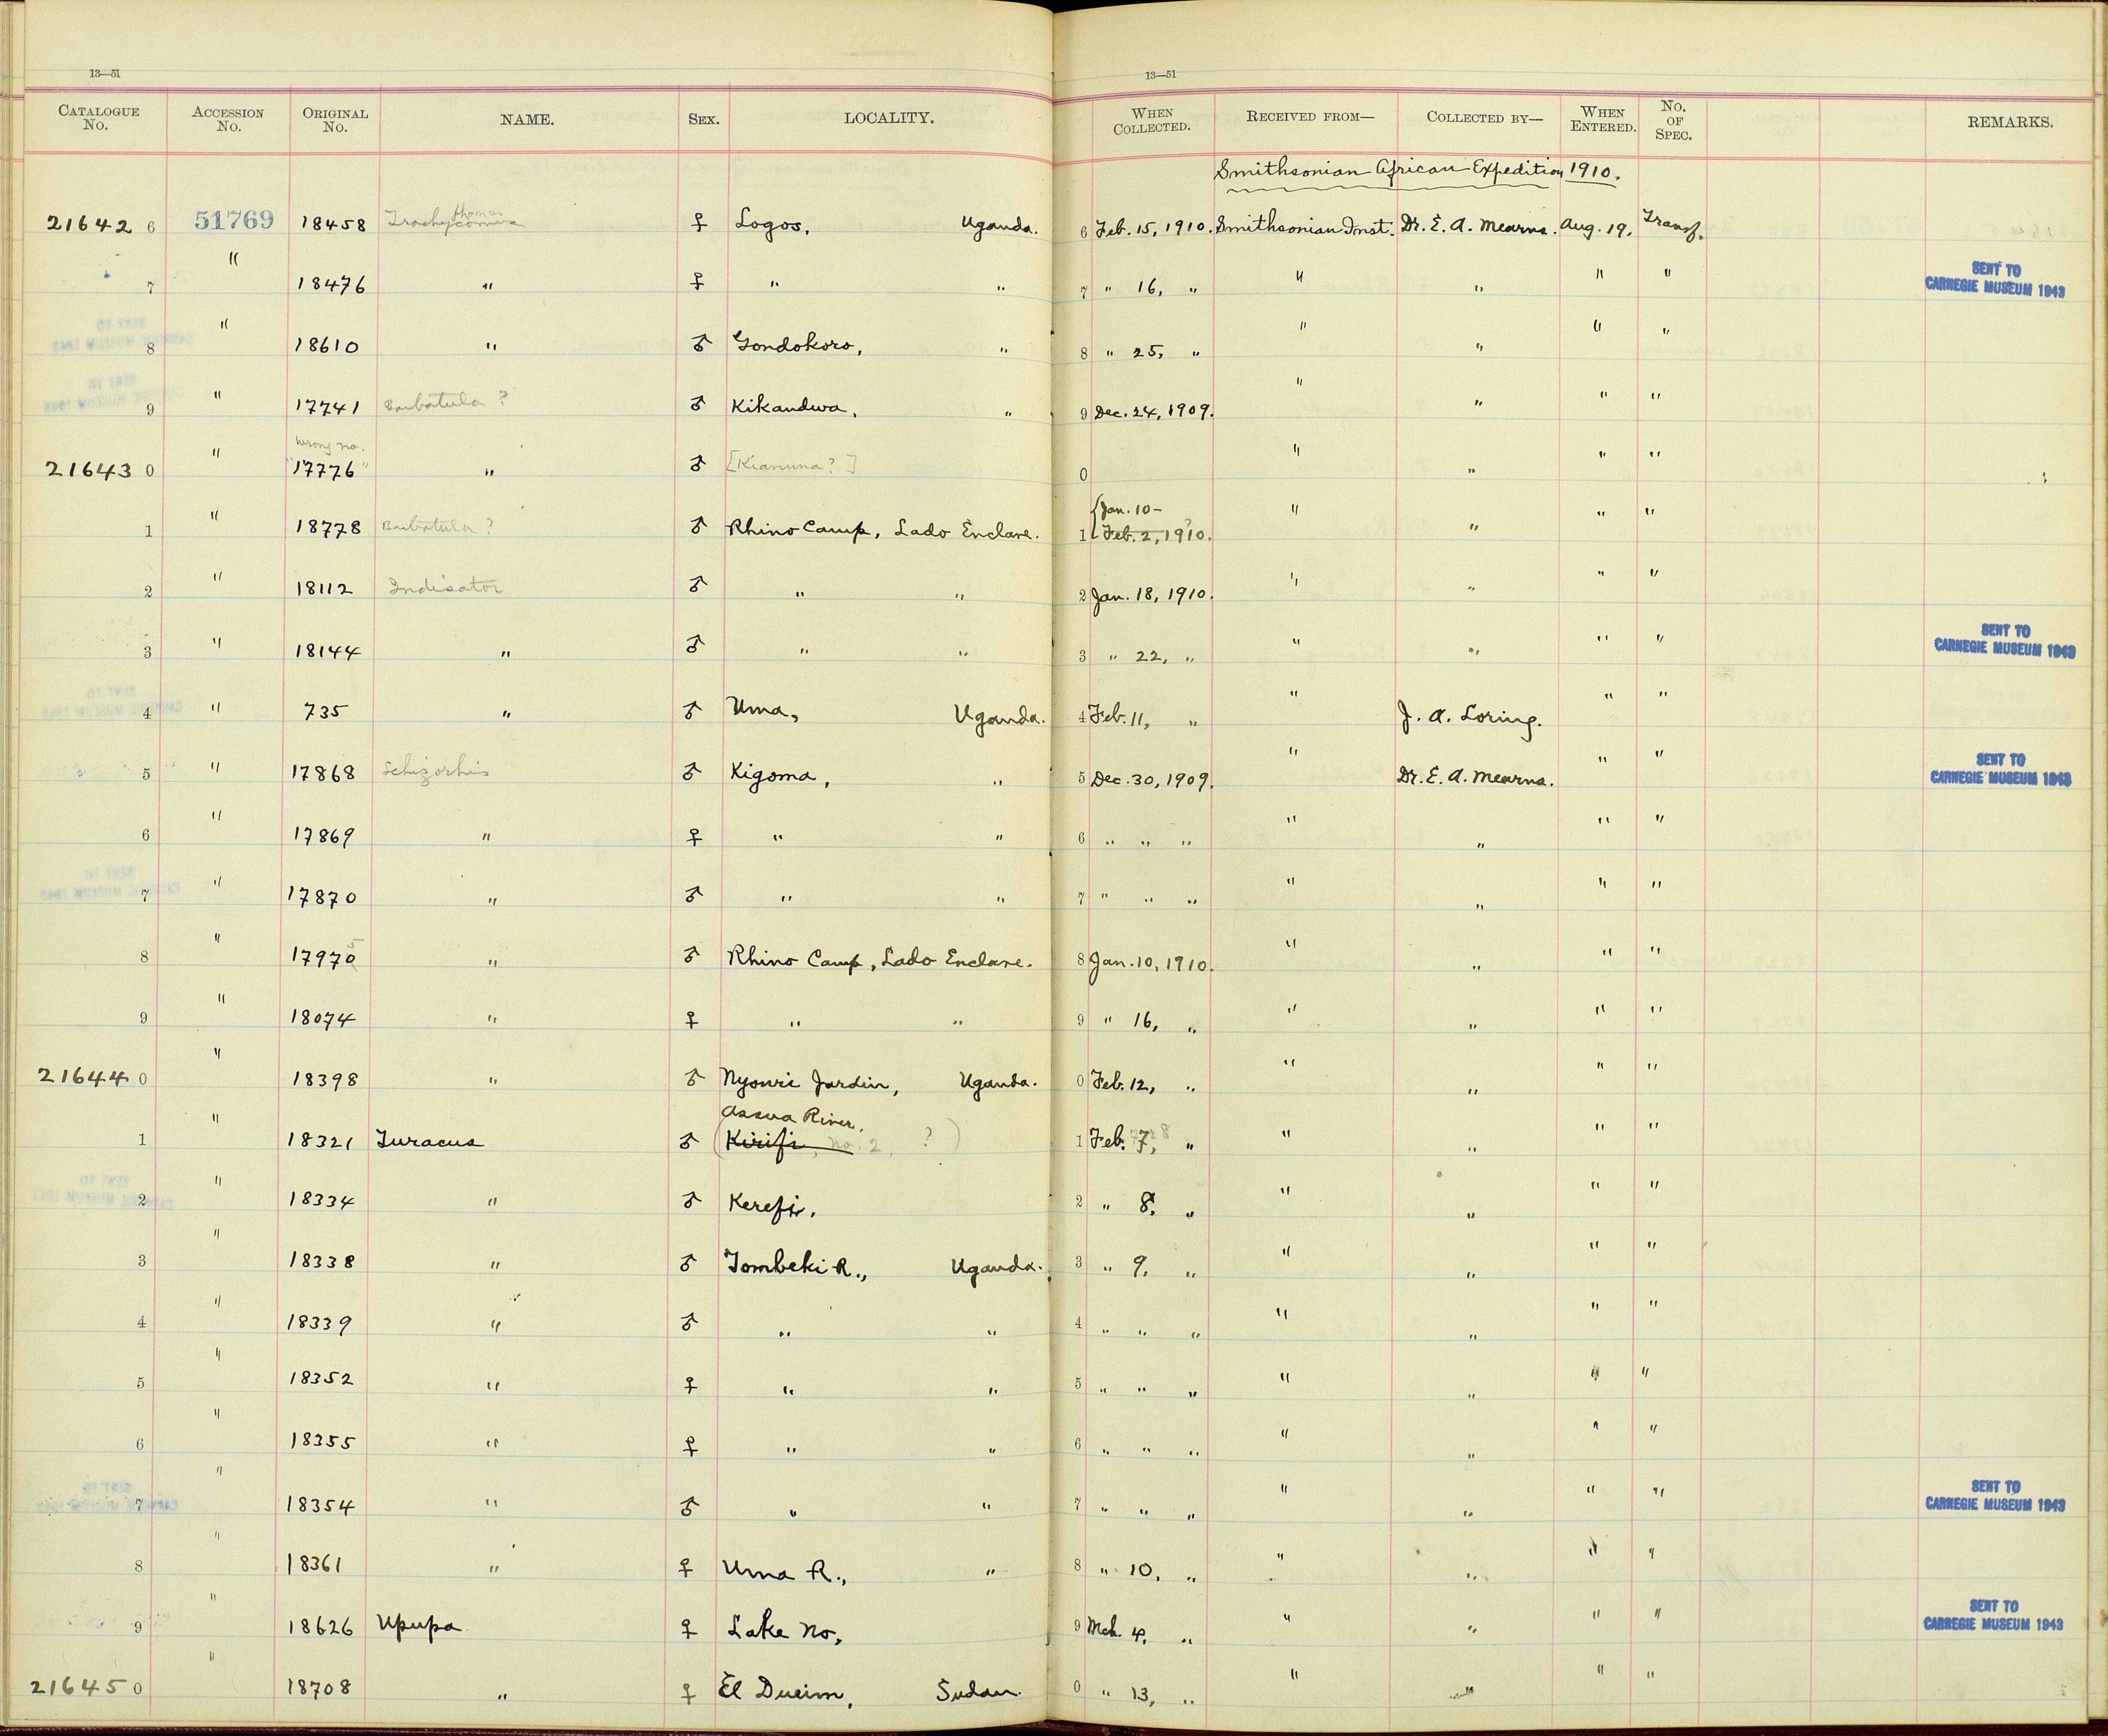 13—51
13—51
CATALOGUE No. ACCESSION No. ORIGINAL No. NAME. SEX. LOCALITY. WHEN COLLECTED. RECEIVED FROM— COLLECTED BY— WHEN ENTERED. No. OF SPEC. REMARKS.
Smithsonian African Expedition 1910.
21642 6 51769 18458 Trachyphonus ♀ Logos, Uganda. 6 Feb. 15, 1910. Smithsonian Inst. Dr. E. A. Mearns. Aug. 19. Transf.
7 " 18476 " ♀ " " 7 " 16, " " " " " SENT TO CARNEGIE MUSEUM 1943
8 " 18610 " ♂ Gondokoro, " 8 " 25, " " " " "
9 " 17741 Barbatula ? ♂ Kikandwa, " 9 Dec. 24, 1909. " " " "
wrong no.
21643 0 " "17776" " ♂ [Kianuna?] 0 " " " "
1 " 18778 Barbatula ? ♂ Rhino Camp, Lado Enclave. 1 {Jan. 10– Feb. 2, 1910. ? " " " "
2 " 18112 Indicator ♂ " " 2 Jan. 18, 1910. " " " "
3 " 18144 " ♂ " " 3 " 22, " " " " " SENT TO CARNEGIE MUSEUM 1943
4 " 735 " ♂ Uma, Uganda. 4 Feb. 11, " " J. A. Loring. " "
5 " 17868 Schizorhis ♂ Kigoma, " 5 Dec. 30, 1909. " Dr. E. A. Mearns. " " SENT TO CARNEGIE MUSEUM 1943
6 " 17869 " ♀ " " 6 " " " " " " "
7 " 17870 " ♂ " " 7 " " " " " " "
8 " 17970 5 " ♂ Rhino Camp, Lado Enclave. 8 Jan. 10, 1910. " " " "
9 " 18074 " ♀ " " 9 " 16, " " " " "
21644 0 " 18398 " ♂ Nyouri Jardin, Uganda. 0 Feb. 12, " " " " "
Assua River.
1 " 18321 Turacus ♂ (Kirifi, no. 2, ?) 1 Feb. 7, " " " " "
2 " 18334 " ♂ Kerefi. 2 " 8, " " " " "
3 " 18338 " ♂ Tombeki R., Uganda. 3 " 9, " " " " "
4 " 18339 " ♂ " " 4 " " " " " " "
5 " 18352 " ♀ " " 5 " " " " " " "
6 " 18355 " ♀ " " 6 " " " " " " "
7 " 18354 " ♂ " " 7 " " " " " " " SENT TO CARNEGIE MUSEUM 1943
8 " 18361 " ♀ Uma R., " 8 " 10, " " " " "
9 " 18626 Upupa ♀ Lake No, 9 Mch. 4, " " " " " SENT TO CARNEGIE MUSEUM 1943
21645 0 " 18708 " ♀ El Dueim, Sudan. 0 " 13, " " " " "